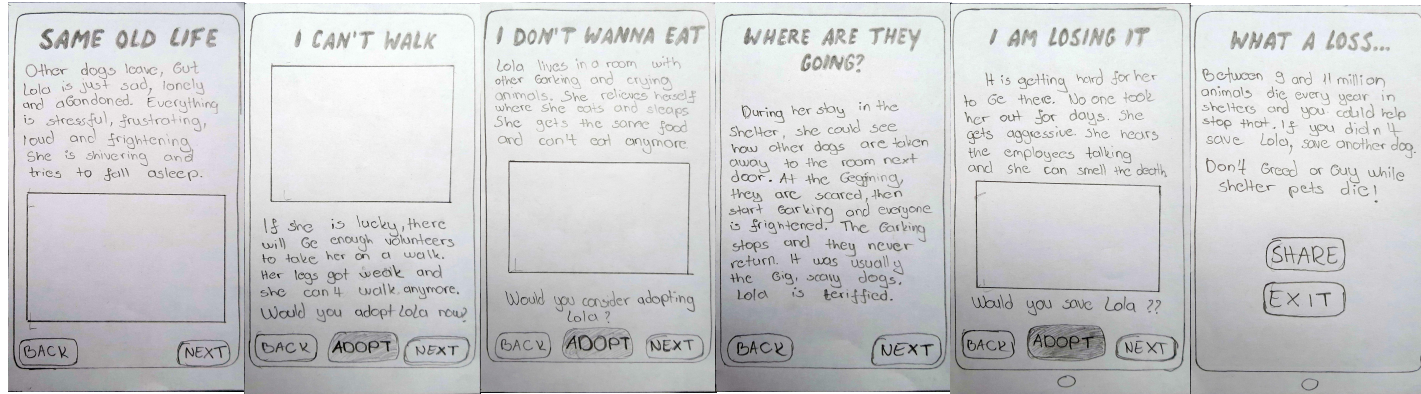 SAME OLD LIFE
Other dogs leave, but
Lola is just sad, lonely
and abandoned. Everything
is stressful, frustrating,
loud and frightening.
She is shivering and
tries to fall asleep.
BACK
NEXT
I CAN'T WALK
If she is lucky, there
will be enough volunteers
to take her on a walk.
Her legs got weak and
she can't walk anymore.
Would you adopt Lola now?
BACK
ADOPT
NEXT
I DON'T WANNA EAT
Lola lives in a room with
other barking and crying
animals. She relieves herself
where she eats and sleeps
She gets the same food
and can't eat anymore
Would you consider adopting
Lola?
BACK
ADOPT
NEXT
WHERE ARE THEY
GOING?
During her stay in the
shelter, she could see
how other dogs are taken
away to the room next
door. At the beggining,
they are scared, then
start barking and everyone
is frightened. The barking
stops and they never
return. It was usually
the big, scary dogs.
Lola is teriffied.
BACK
NEXT
I AM LOSING IT
It is getting hard for her
to be there. No one took
her out for days. She
gets aggressive. She hears
the employees talking
and she can smell the death
Would you save Lola ??
BACK
ADOPT
NEXT
WHAT A LOSS...
Between 9 and 11 million
animals die every year in
shelters and you could help
stop that. If you didn't
save Lola, save another dog.
Don't breed or buy while
shelter pets die!
SHARE
EXIT